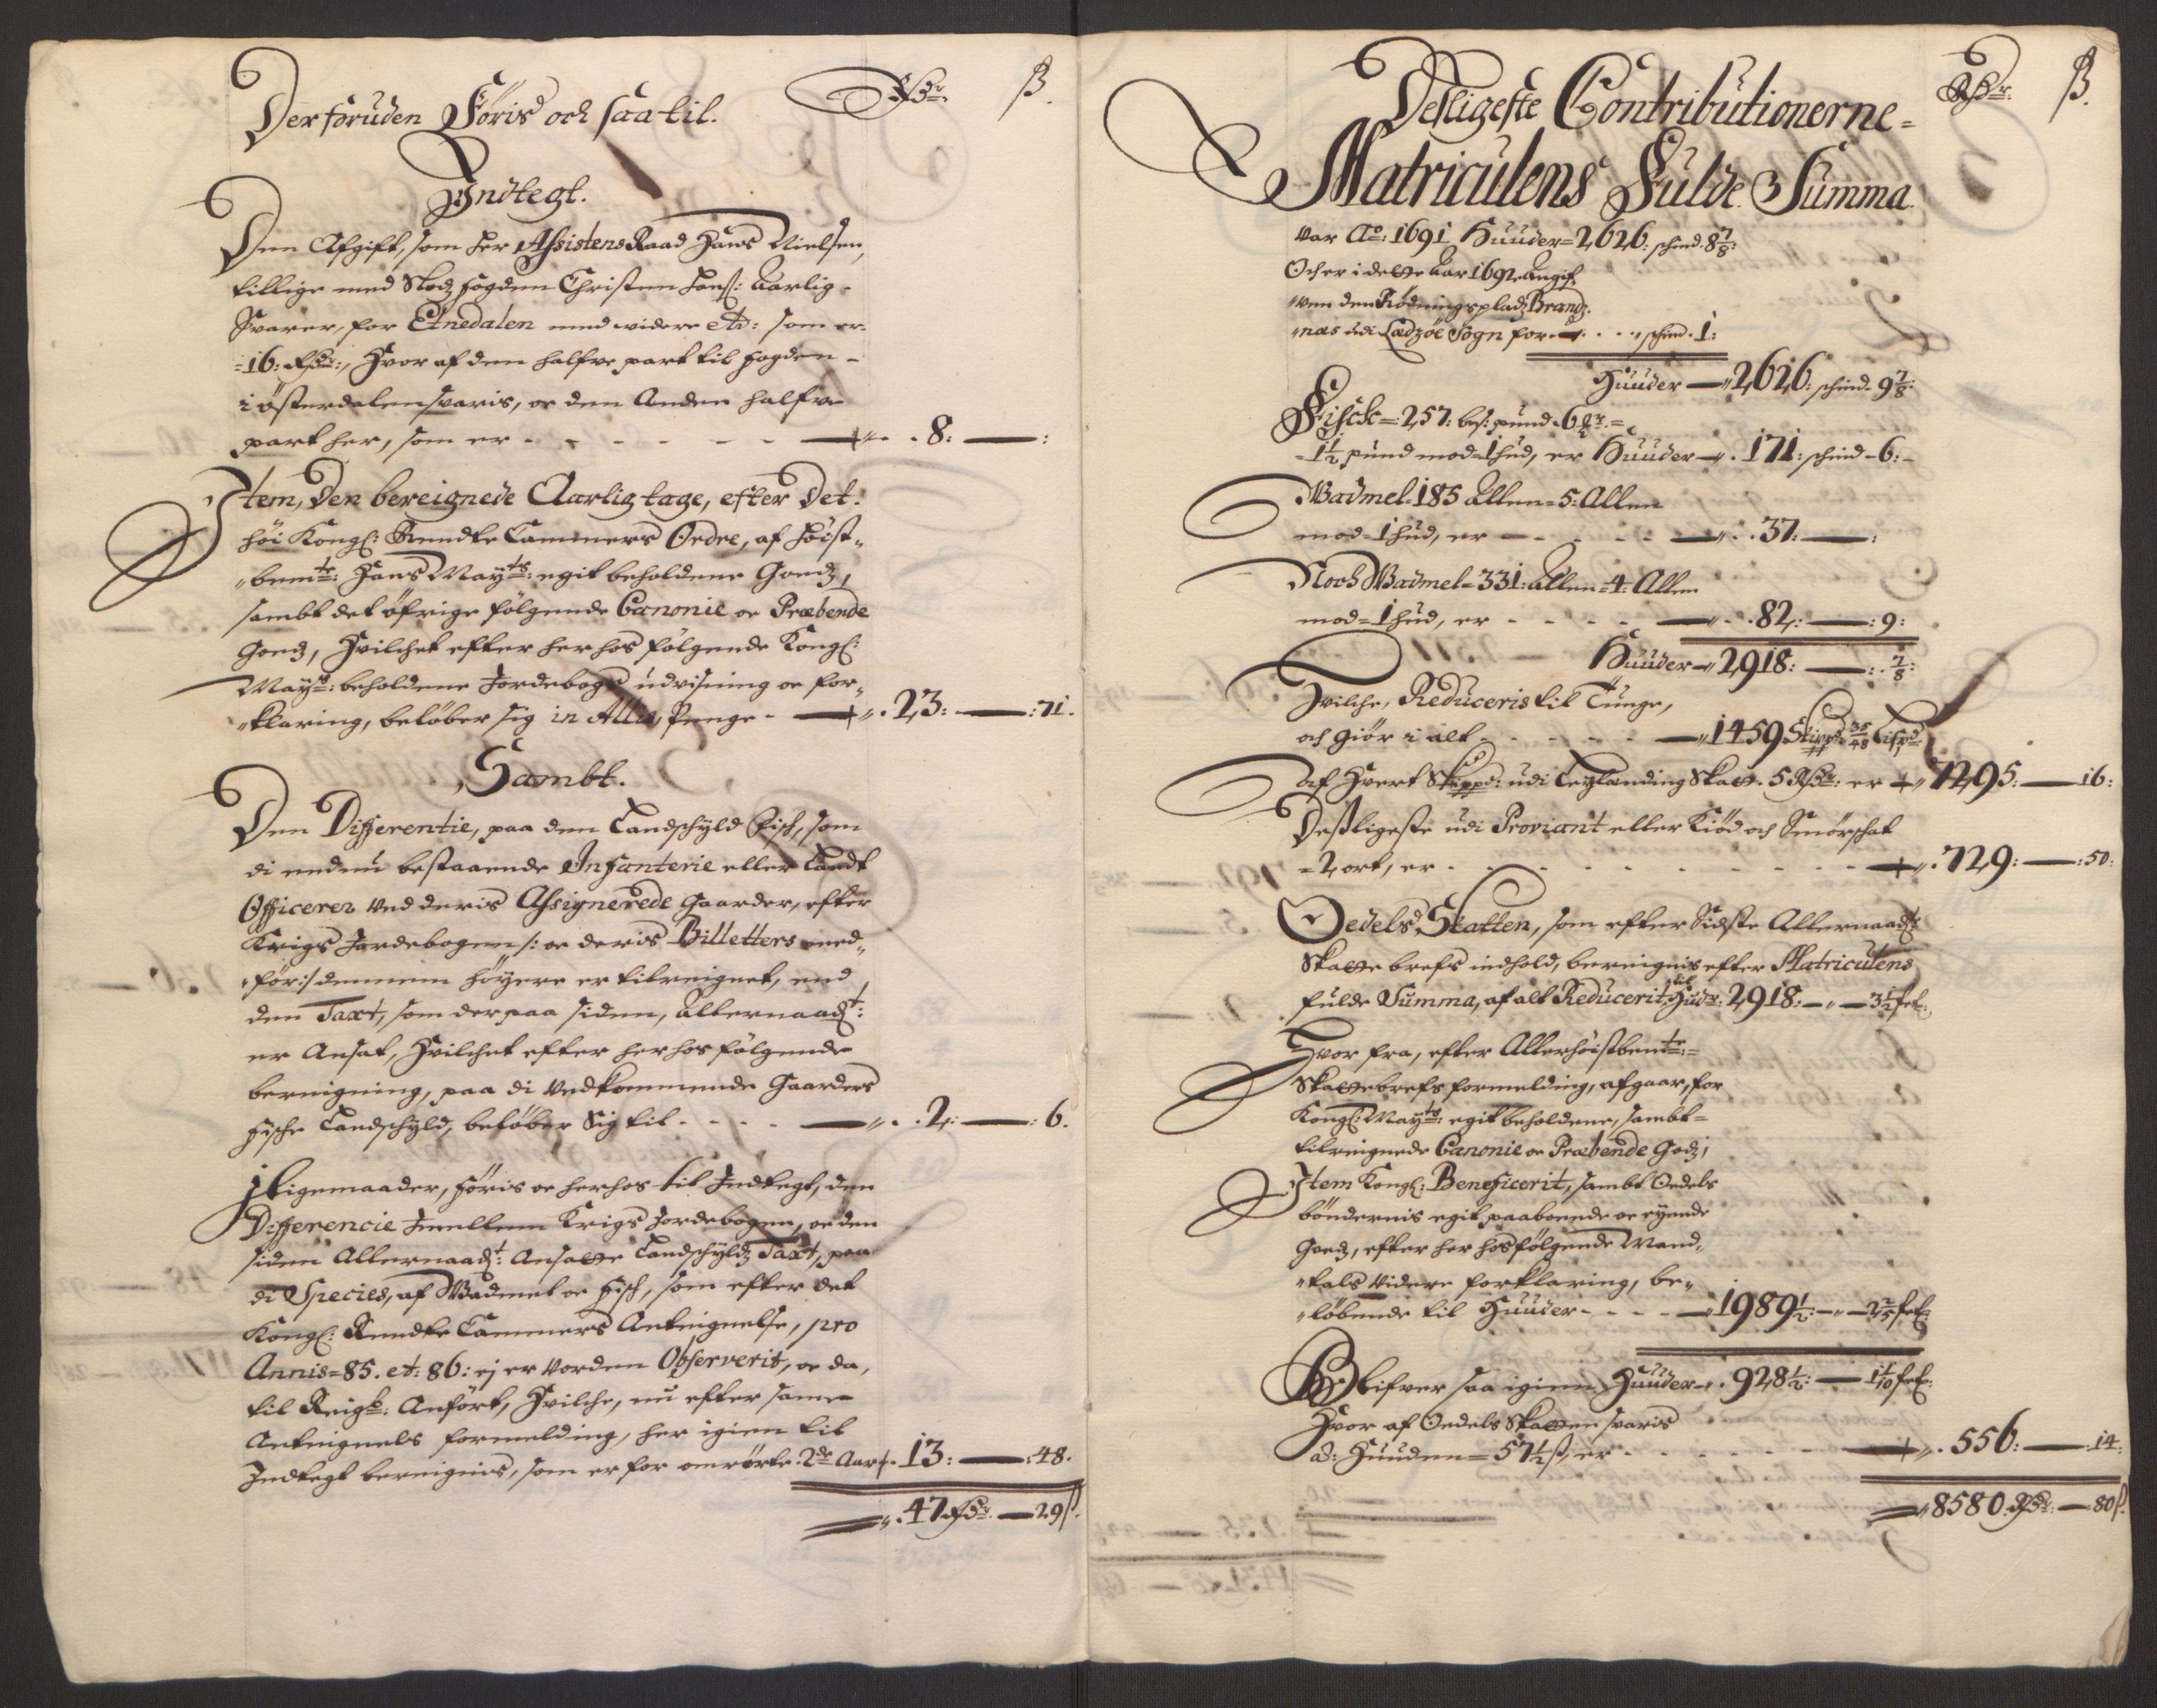 Rdr ß
Derforuden Föris och saa til.
Indtegt.
Den Afgift, som her Assistens Raad Hans Nielsen,
tillige med Stodz fogden Christen Jens: Aarlig
Svarer, for Etnedalen med widere etc: som er
16: Rdr:, Hvor af den halfve part til fogden
i österdalen svaris, oc den Anden halfve
part her, som er - - - 8: — :
Item, Den bereignede Aarlig tage, efter Det
höi Kongl: Rendte Cammers Ordre, af höist
bemte: Hans Mayts: egit beholdene Goedz,
sambt det öfrige fölgende Canonie oc Præbende
Goedz, Hvilchet efter her hos fölgende Kongl:
Mayts: beholdene Jordebogs udvisning oc for
klaring, belöber sig in Alles, Penge - 23: — :71.
Sambt.
Den Differentie, paa den Landschyld Fisch, som
di endnu bestaaende Infanterie eller Landt
Officerer ved deris Assignerede Gaarder, efter
Krigs Jordebogen /: oc deris Billetters med
för:/ dennem höyere er tilreignet, end
den Taxt, som der paa siden, Allernaadt:
er Ansat, Hvilchet efter her hos fölgende
bereigning, paa di vedkommende Gaarders
fische Landschyld, belöber Sig til - - - 2: — : 6.
J ligemaader, föris oc her hos til Indtegt, den
Differencie Jmellem Krigs Jordebogen, oc den
siden Allernaadt: Ansatte Landschyldz Taxt, paa
di Species, af Wadmel oc fisch, som efter det
Kongl: Rendte Cammers Antreignelse, pro
Annis 85. et: 86: ej er vorden Observerit, oc da,
til Reigk: Anfört, Hvilche, nu efter samme
Antreignels formelding, her igien til
Indtegt bereignes, som er for omrörte 2de Aar 13: — :48.
47 Rdr — 29ß.
Rdr. ß.
Desligeste Contributionerne
Matriculens Fulde Summa
Var Ao: 1691 Huuder 2626: schind 8 7/8:
Och er i dette Aar 1692 angif
ven den Rödningsplads Brand
næs udi Ladzöe Sogn for - - - schind. 1:
Huuder — 2626: schind 9 7/8:
Fisck 257: bes: pund 6 Lr. =
1 1/2 pund mod 1 hud, er Huuder - 171: schind - 6:
Wadmel 185 Allen 5: Allen
mod 1 hud, er - - - 37: — :
Noch Wadmel 331: Allen 4 Allen
mod 1 hud, er - - - 82: — : 9:
Huuder 2918: — : 7/8:
Hvilche, Reduceris til Tunge,
och giör i alt - - - 1459 Skippd: 35/48 Lispd:
Af Hvert Skippd: udi Leylending Skatt 5 Rdr: er 7295: — 16:
Desligeste udi Proviant eller Kiöd och Smörschat
2 ort, er - - - 729: — :50:
Oedels Skatten, som efter Sidste Allernaadt:
Skatte brefs indhold, bereignis efter Matriculens
fulde Summa, af alt Reducerit til Hudr: 2918: — 3 1/2 ß:
Hvor fra, efter Allerhöistbemte:
Skattebrefs formelding, afgaar, for
Kongl: Mayts: egit beholdene, sambt
tilreignede Canonie oc Præbende Godz,
Item Kongl: Beneficerit, sambt Oedels
böndernis egit paaboende oc eyende
Goedz, efter her hos fölgende Mand
tals videre forklaring, be
löbende til Huuder - - - 1989 1/2: — 2 2/5 ß:
Blifver saa igien Huuder 928 1/2: — 1 1/10 ß:
Hvor af Oedels Skatten svaris
ad: Huuden 57 1/2 ß, er - - - 556: — 14:
8580 Rdr: — 80ß.